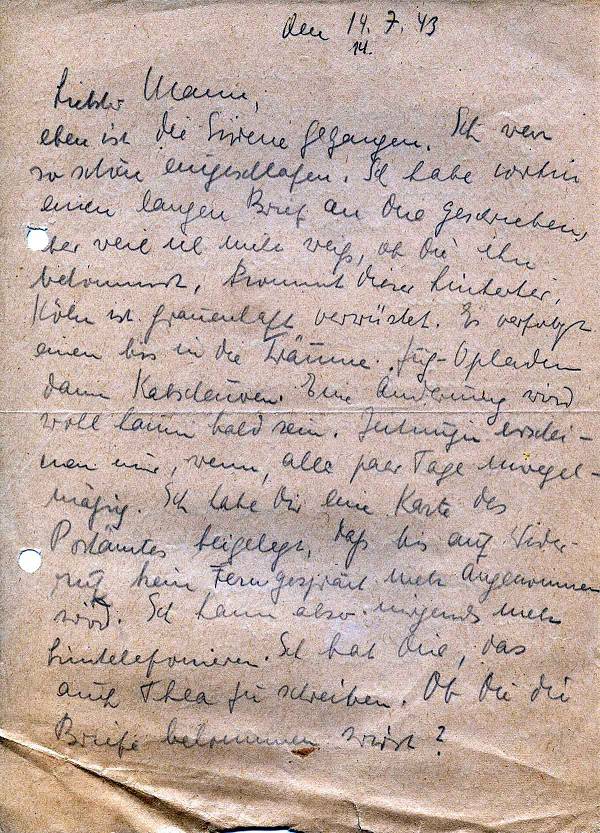 den 14. 7. 43
14.
Liebster Mann,
eben ist die Sirene gegangen. Ich war
so schön eingeschlafen. Ich habe vorhin
einen langen Brief an Die geschrieben,
aber weil ich nicht weiß, ob Du ihn
bekommst, kommt dieser hinterher.
Köln ist grauenhaft verwüstet. Es verfolgt
einen bis in die Träume. Opladen
dann Änderung wird
wohl kaum bald sein. Zeitungen erschei-
nen nur, wenn, alle paar Tage unregel-
mäßig. Ich habe Dir eine Karte des
Postamtes beigelegt, daß bis auf Wider-
ruf kein Ferngespräch mehr angenommen
wird. Ich kann also nirgends mehr
hintelefonieren. Ich bat Die, das
auch Thea zu schreiben. Ob Du die
Briefe bekommen wirst?